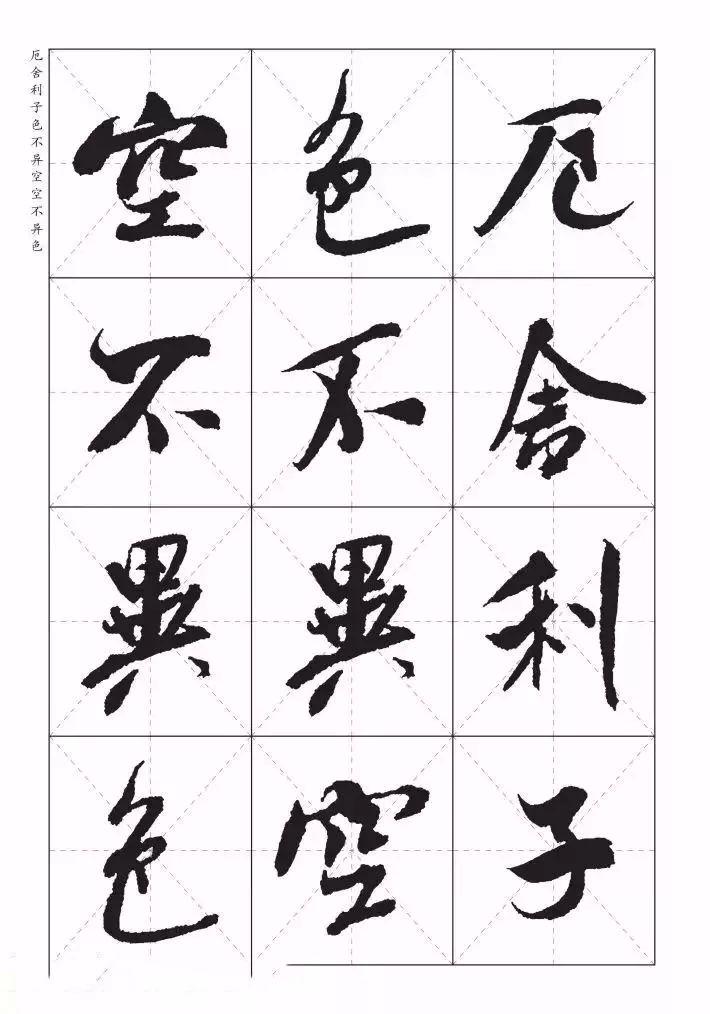 厄舍利子色不异空空不异色
厄舍利子
色不異空
空不異色